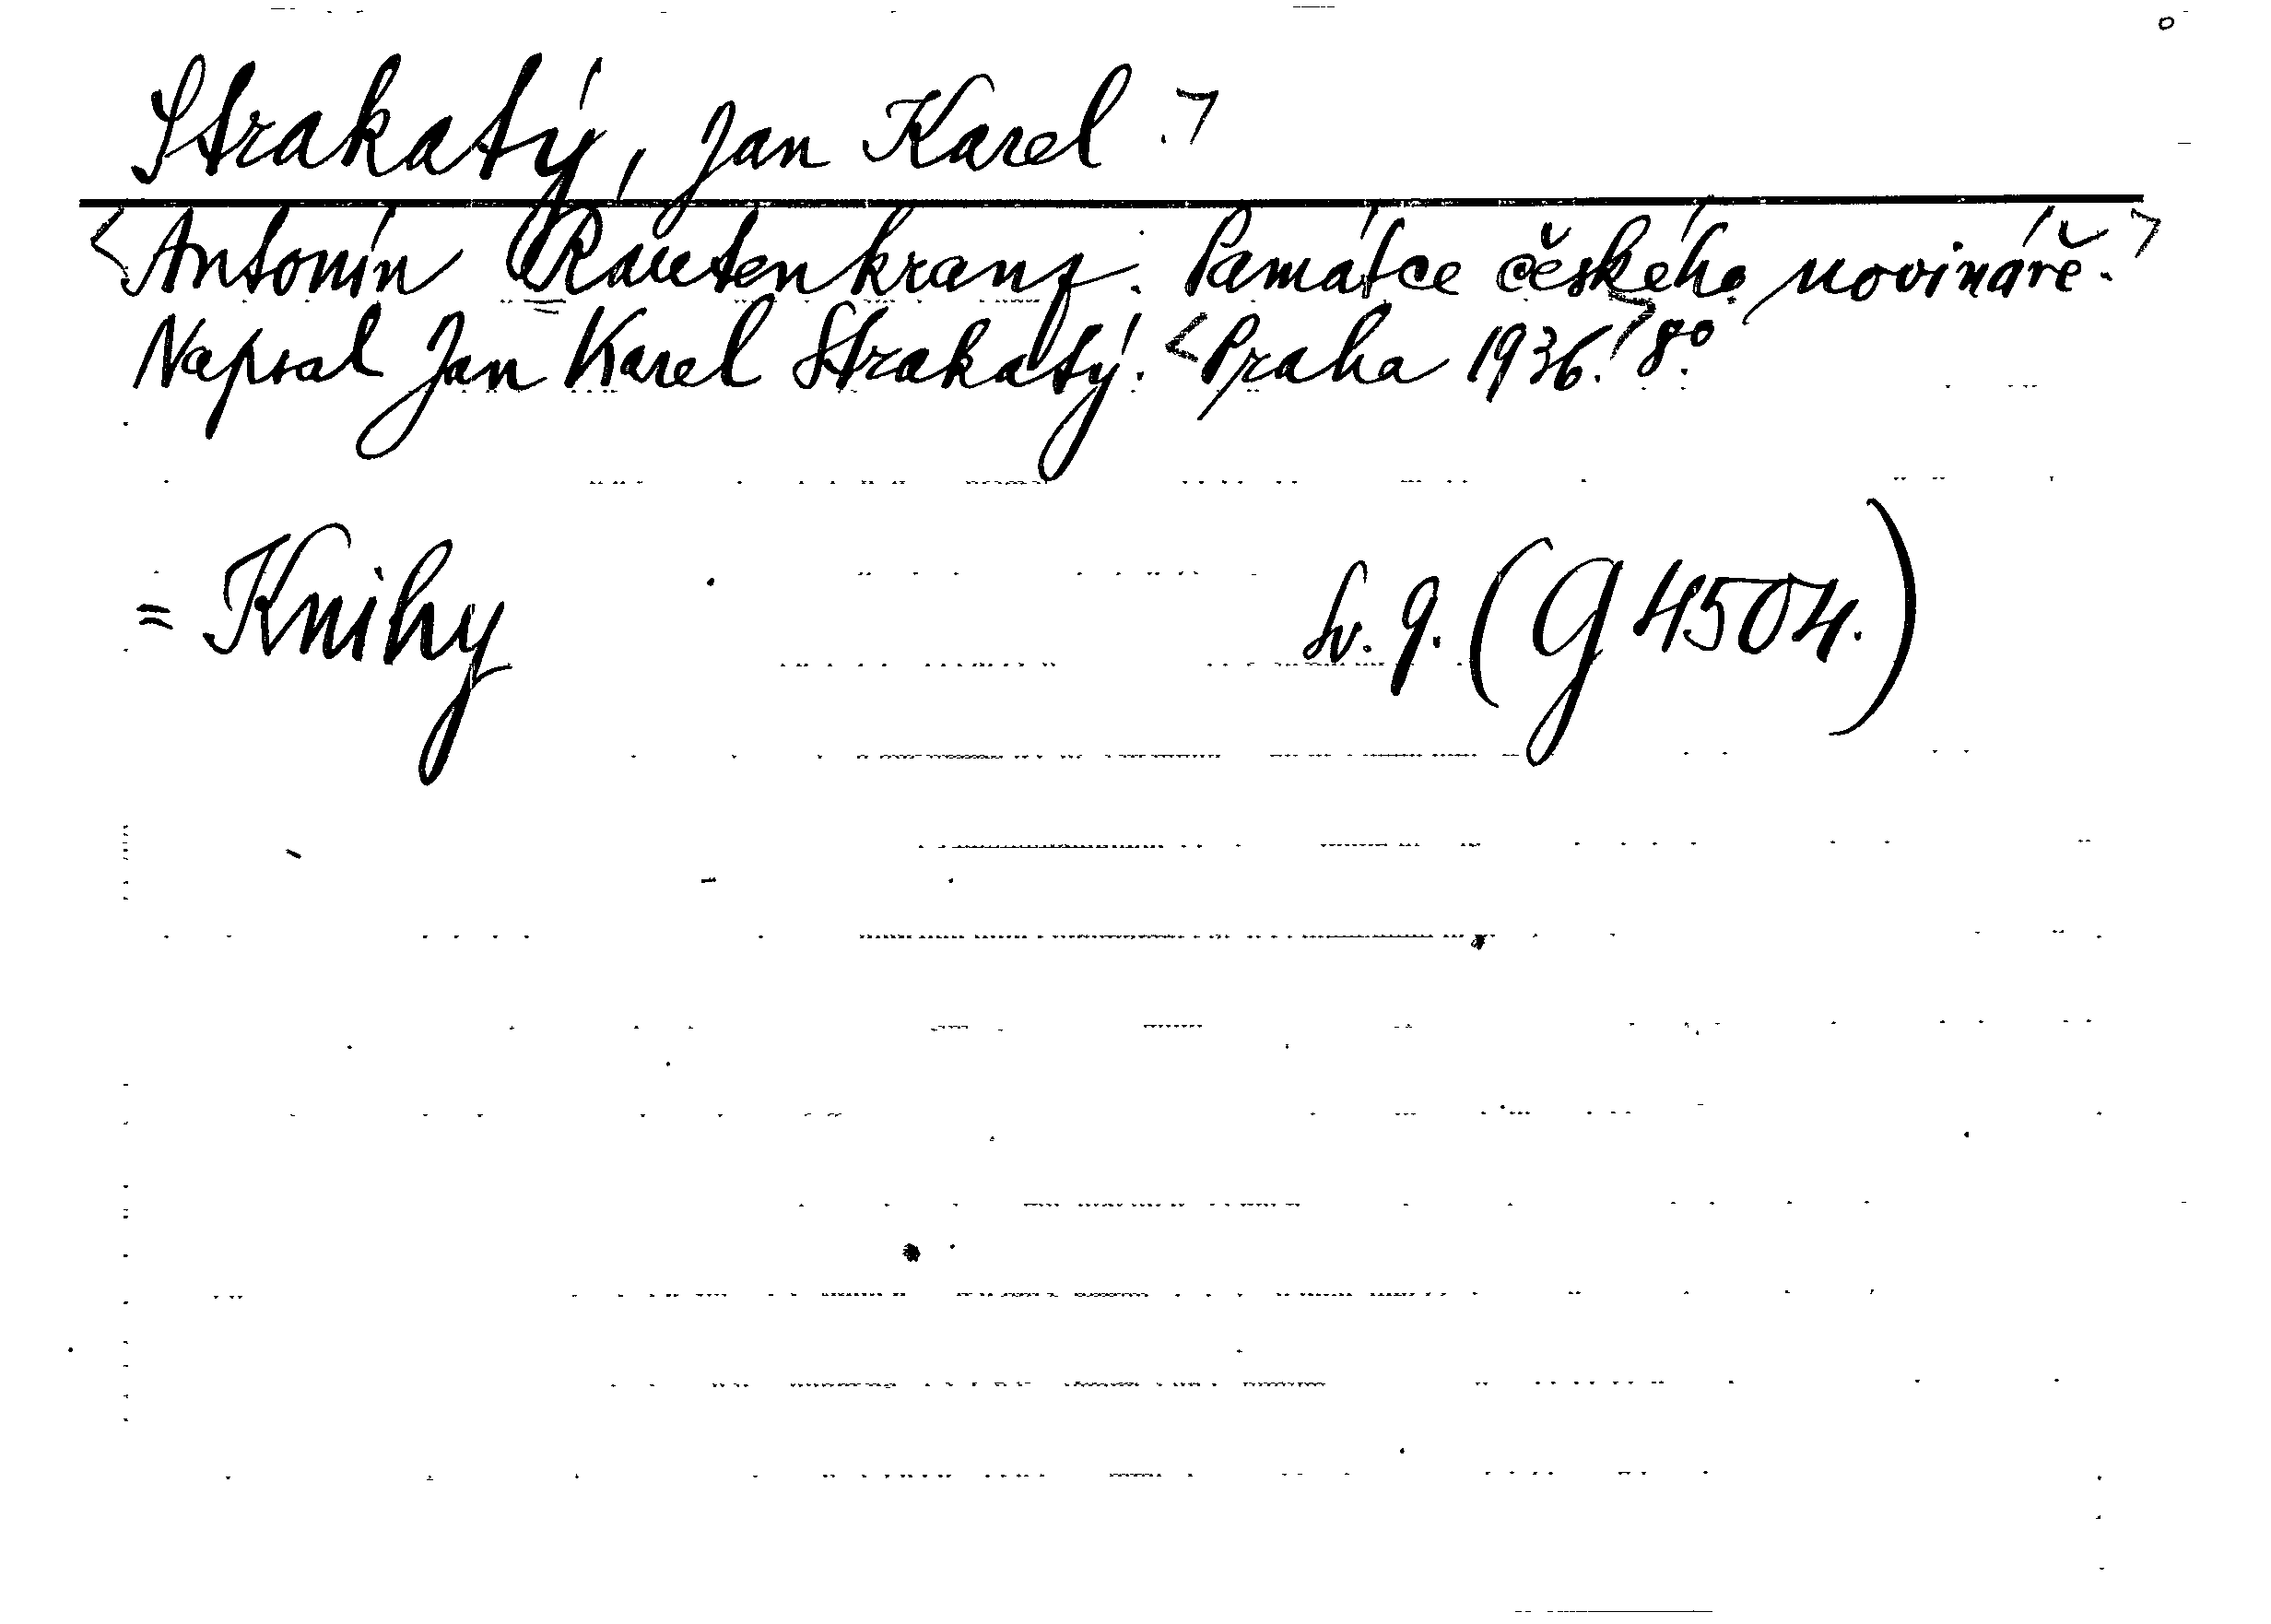 Strakatý, Jan Karel .>
<Antonín Rautenkranz. Památce českého novináře.>
Napsal Jan Karel Strakatý. <Praha 1936.> 8º.
= Knihy sv. 9. (G 4504.)